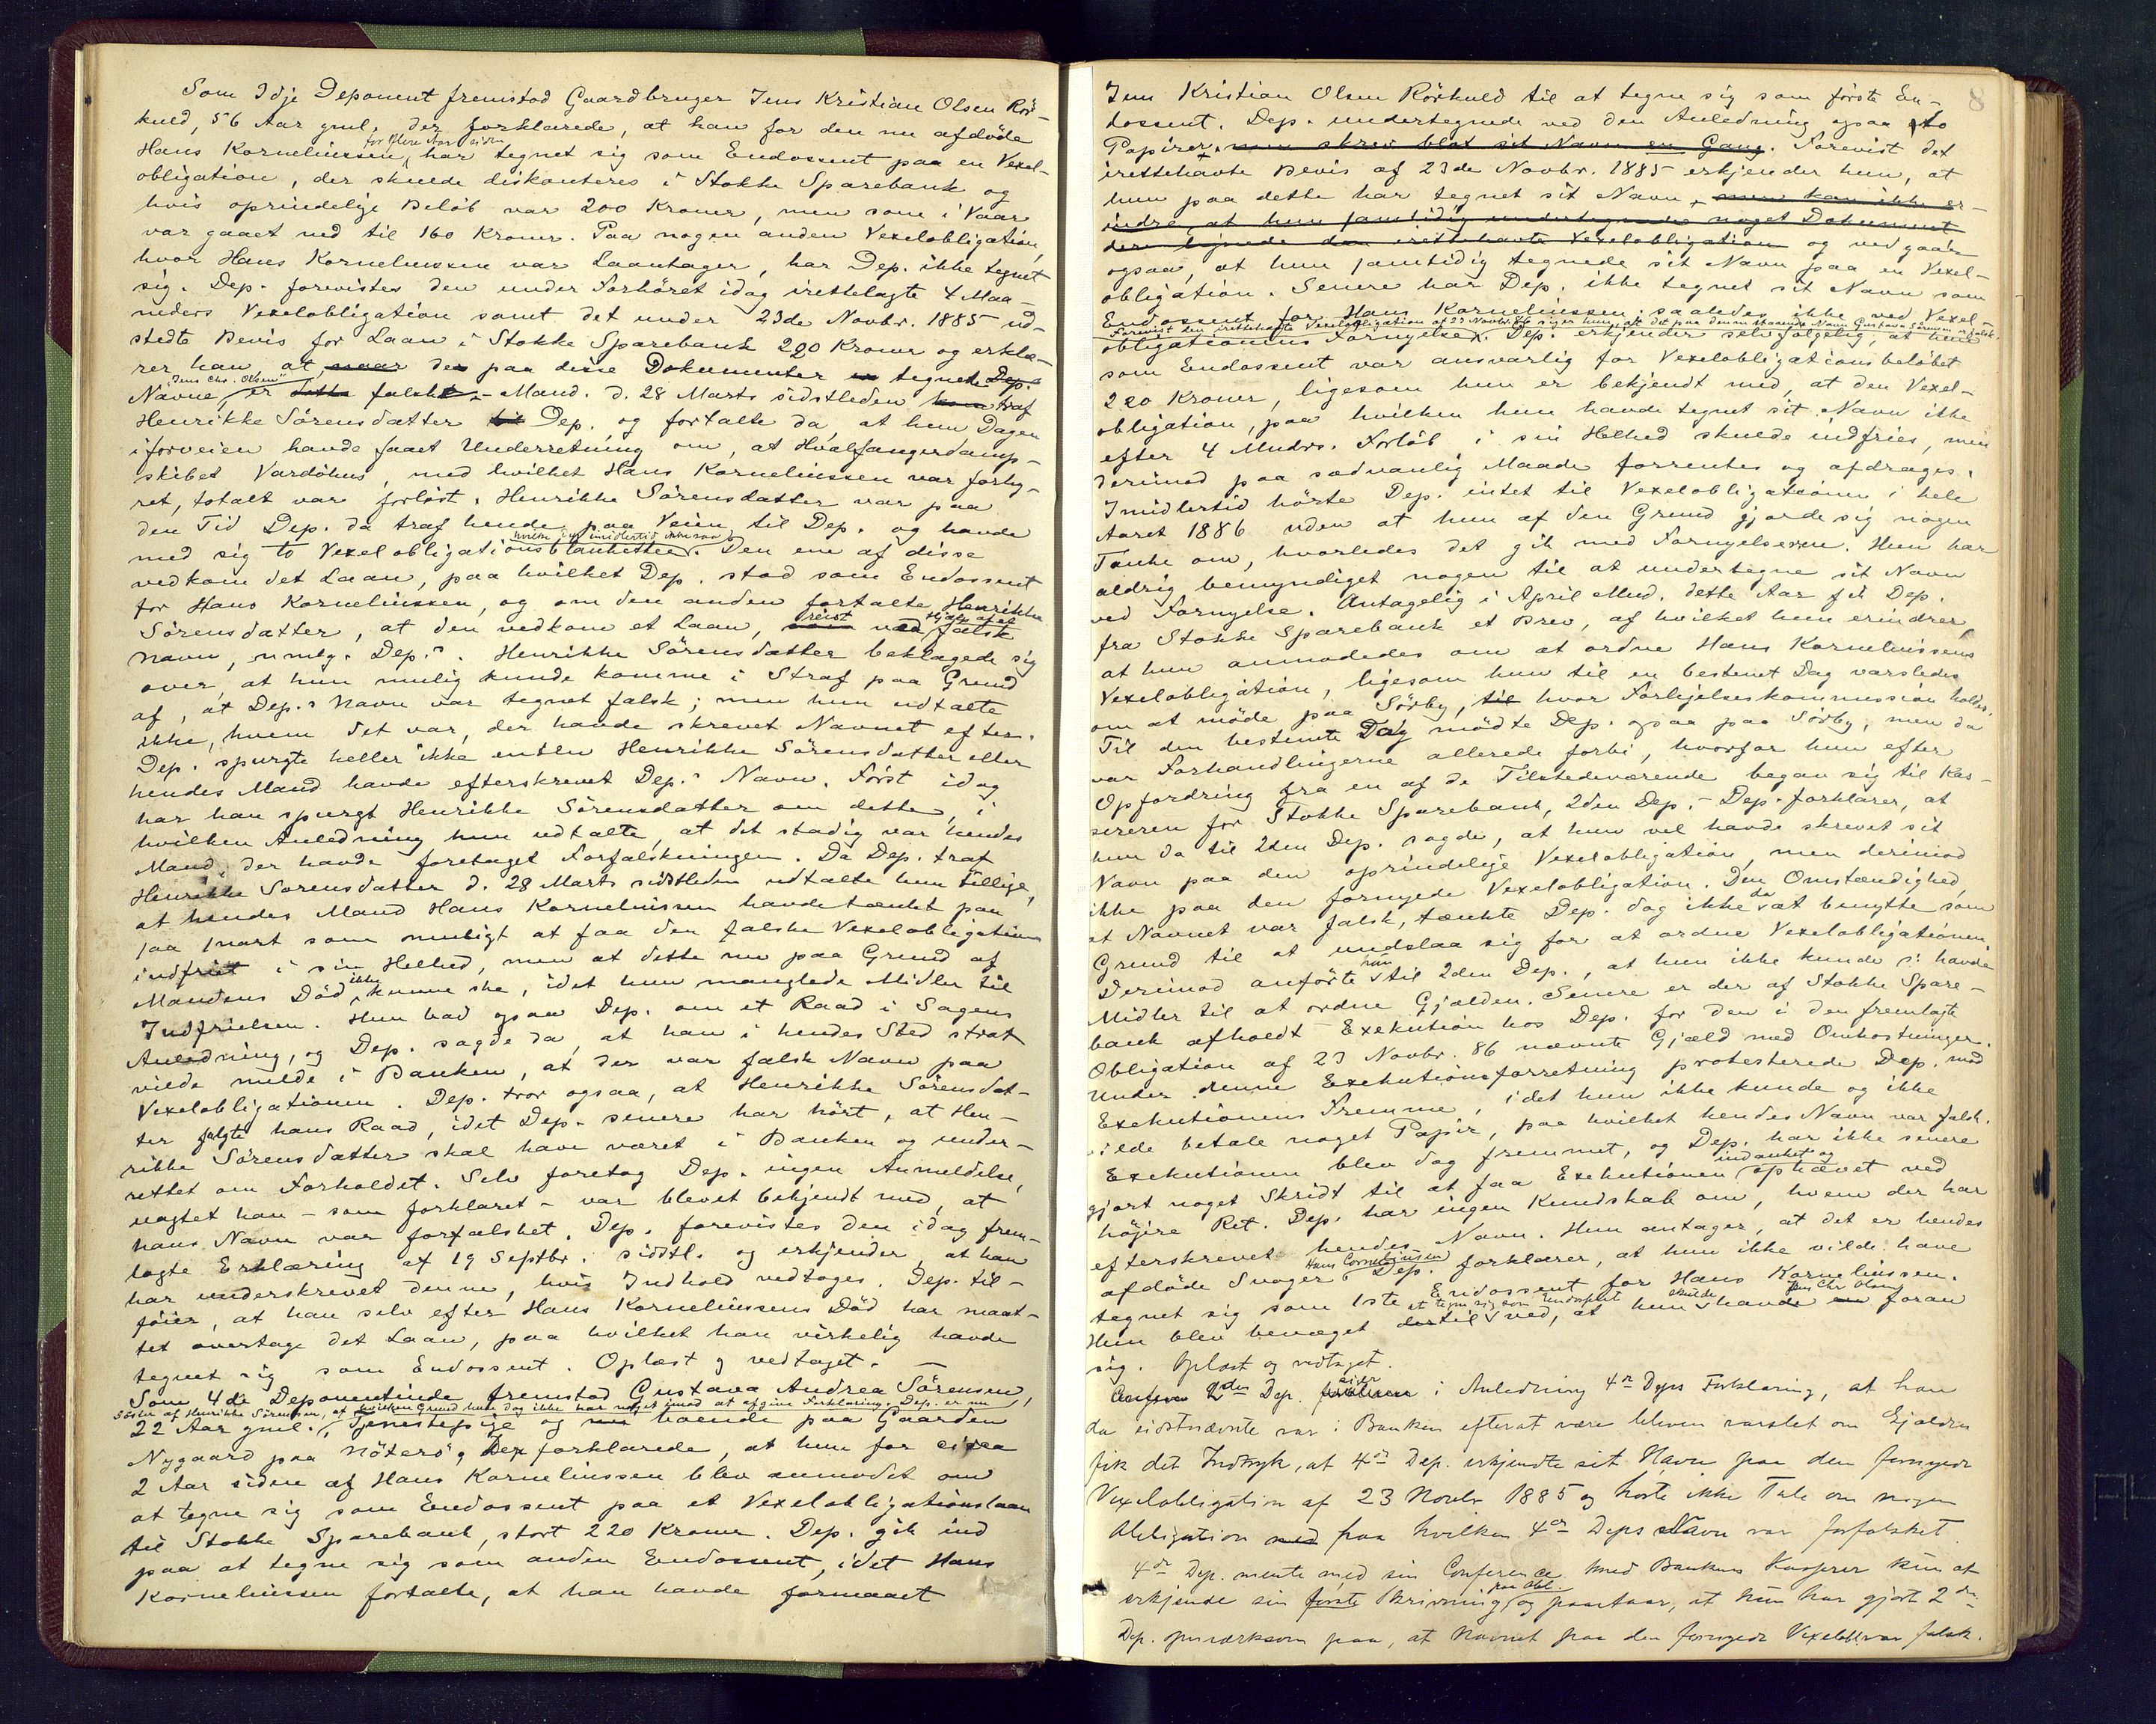 Som 3dje Deponent fremstod Gaardbruger Jens Kristian Olsen Rör-
kuld, 56 Aar gml. der forklarede, at han for den nu afdöde
for flere Aar siden
Hans Kornelinssen, har tegnet sig som Endossent paa en Vexel-
obligation, der skulde diskonteres i Stokke Sparebank og
hvis oprindelige Belöb var 200 Kroner, men som i Vaar
var gaaet ned til 160 Kroner. Paa nogen anden Vexelobligation,
hvor Hans Kornelinssen var Laantager, har Dep. ikke tegnet
sig. Dep. forevistes den under Forhöret idag irettelagte 4 Maa-
neders Vexelobligation samt det under 23de Novbr. 1885 ud-
stedte Bevis for Laan i Stokke Sparebank 220 Kroner og erklæ-
rer han, at naar den paa disse Dokumenter er tegnede Dep.
"Jens Chr. Olsen"
Navne er dette falskt. - Mand. d. 28 Marts sidstleden kom traf
Henrikke Sörensdatter til Dep. og fortalte da, at hun Dagen
iforveien havde faaet Underretning om, at Hvalfangerdamp-
skibet Vardöhus, med hvilket Hans Kornelinssen var forhy-
ret, totalt var forlist. Henrikke Sörensdatter var paa
den Tid Dep. da traf hende paa Veien til Dep. og havde
hvilke Dep. imidlertid ikke saa
med sig to Vexelobligationsblanketter. Den ene af disse
vedkom det Laan, paa hvilket Dep. stod som Endossent
for Hans Kornelinssen, og om den anden fortalte Henrikke
reist Hjælp af et
Sörensdatter, at den vedkom et Laan, som ved falsk
Navn, nmlg. Dep.s. Henrikke Sörensdatter beklagede sig
over, at hun mulig kunde komme i Straf paa Grund
af, at Dep.s Navn var tegnet falsk; men hun udtalte
ikke, hvem det var, der havde skrevet Navnet efter.
Dep. spurgte heller ikke enten Henrikke Sörensdatter eller
hendes Mand havde efterskrevet Dep.s Navn. Först idag
har han spurgt Henrikke Sörensdatter om dette, i
hvilken Anledning hun udtalte, at det stadig var hendes
Mand, der havde foretaget Forfalskningen. Da Dep. traf
Henrikke Sörensdatter d. 28 Marts sidstleden udtalte hun tillige,
at hendes Mand Hans Kornelinssen havde tænkt paa
saa snart som muligt at faa den falske Vexelobligation
indfriet i sin Helhed, men at dette nu paa Grund af
ikke
Mandens Död kunne ske, idet hun manglede Midler til
Indfrielsen. Hun bad ogsaa Dep. om et Raad i Sagens
Anledning, og Dep. sagde da, at han i hendes Sted strax
vilde melde i Banken, at der var falsk Navn paa
Vexelobligationen. Dep. tror ogsaa, at Henrikke Sörensdat-
ter fulgte hans Raad, idet Dep. senere har hört, at Hen-
rikke Sörensdatter skal have været i Banken og under-
rettet om Forholdet. Selv foretog Dep. ingen Anmeldelse,
uagtet han - som forklaret - var blevet bekjendt med, at
hans Navn var forfalsket. Dep. forevistes den idag frem-
lagte Erklæring af 19 Septbr. sidstl. og erkjender, at han
har underskrevet denne, hvis Indhold vedtages. Dep. til-
föier, at han selv efter Hans Kornelinssens Död har maat-
tet overtage det Laan, paa hvilket han virkelig havde
tegnet sig som Endossent. Oplæst og vedtaget. —
Som 4de Deponentinde fremstod Gustava Andrea Sörensen,
Söster af Henrikke Sörensen, af hvilken Grund hun dog ikke har noget imod at afgive Forklaring. Dep. er nu
22 Aar gml., Tjenestepige og nu boende paa Gaarden
Nygaard paa Nöterö, Dep. forklarede, at hun for circa
2 Aar siden af Hans Kornelinssen blev anmodet om
at tegne sig som Endossent paa et Vexelobligationslaan
til Stokke Sparebank, stort 220 Kroner. Dep. gik ind
paa at tegne sig som anden Endossent, idet Hans
Kornelinssen fortalte, at han havde formaaet
8
Jens Kristian Olsen Rörkuld til at tegne sig som förste En-
dossent. Dep. undertegnede ved den Anledning ogsaa to
Papirer, men skrev blot sit Navn en Gang. Forevist det
irettehavte Bevis af 23de Novbr. 1885 erkjender hun, at
hun paa dette har tegnet sit Navn, men kan ikke er-
indre, at hun samtidig undertegnede noget Dokument
der lignede den irettehavte Vexelobligation og vedgaar
ogsaa, at hun samtidig tegnede sit Navn paa en Vexel-
obligation. Senere har Dep. ikke tegnet sit Navn som
Endossent for Hans Kornelinssen, saaledes ikke ved Vexel-
Forevist den irettehavte Vexelobligation af 23 Novbr. 86 siger hun, at det paa denne staaende Navn Gustava Sörensen er falsk.
obligationens Fornyelse. Dep. erkjender selvfölgelig, at hun
som Endossent var ansvarlig for Vexelobligationsbelöbet
220 Kroner, ligesom hun er bekjendt med, at den Vexel-
obligation, paa hvilken hun havde tegnet sit Navn ikke
efter 4 Mndrs. Forlöb i sin Helhed skulde indfries, men
derimod paa sædvanlig Maade forrentes og afdrages.
Imidlertid hörte Dep. intet til Vexelobligationen i hele
Aaret 1886 uden at hun af den Grund gjorde sig nogen
Tanke om, hvorledes det gik med Fornyelserne. Hun har
aldrig bemyndiget nogen til at undertegne sit Navn
ved Fornyelse. Antagelig i April Mnd. dette Aar fik Dep.
fra Stokke Sparebank et Brev, af hvilket hun erindrer,
at hun anmodedes om at ordne Hans Kornelinssens
Vexelobligation, ligesom hun til en bestemt Dag varsledes
om at möde paa Sörby, til hvor Forligelseskommission holdes.
Til den bestemte Dag mödte Dep. ogsaa paa Sörby, men da
var Forhandlingerne allerede forbi, hvorfor hun efter
Opfordring fra en af de Tilstedeværende begav sig til Kas-
sereren for Stokke Sparebank, 2den Dep. - Dep. forklarer, at
hun da til 2den Dep. sagde, at hun vel havde skrevet sit
Navn paa den oprindelige Vexelobligation, men derimod
ikke paa den fornyede Vexelobligation. Den Omstændighed,
da
at Navnet var falsk, tænkte Dep. dog ikke at benytte som
Grund til at undslaa sig for at ordne Vexelobligationen.
hun
Derimod anförte til 2den Dep., at hun ikke kunde havde
Midler til at ordne Gjælden. Senere er der af Stokke Spare-
bank afholdt Exekution hos Dep. for den i den fremlagte
Obligation af 23 Novbr. 86 nævnte Gjæld med Omkostninger.
Under denne Exekutionsforretning protesterede Dep. mod
Exekutionens Fremme, idet hun ikke kunde og ikke
vilde betale noget Papir, paa hvilket hendes Navn var falsk.
Exekutionen blev dog fremmet, og Dep. har ikke senere
indanket og
gjort noget Skridt til at faa Exekutionen ophævet ved
höjere Ret. Dep. har ingen Kundskab om, hvem der har
efterskrevet hendes Navn. Hun antager, at det er hendes
Hans Cornelinssen
afdöde Svoger. Dep. forklarer, at hun ikke vilde have
tegnet sig som 1ste Endossent for Hans Kornelinssen.
at tegne sig som Endossent skulde Jens Chr. Olsen
Hun blev bevæget dertil ved, at hun havde en foran
sig. Oplæst og vedtaget.
siger
Confrer 2den Dep. forklarer i Anledning 4de Deps Forklaring, at han
da sidstnævnte var i Banken efterat være bleven varslet om Gjælden
fik det Indtryk, at 4de Dep. erkjendte sit Navn paa den fornyede
Vexelobligation af 23 Novbr 1885 og hörte ikke Tale om nogen
Obligation med paa hvilken 4de Deps Navn var forfalsket.
4de Dep. mente med sin Conference med Bankens Kasserer kun at
paa Obl.
erkjende sin förste Skrivning og paastaar, at hun har gjort 2den
Dep. opmærksom paa, at Navnet paa den fornyede Vexelobl. var falsk.